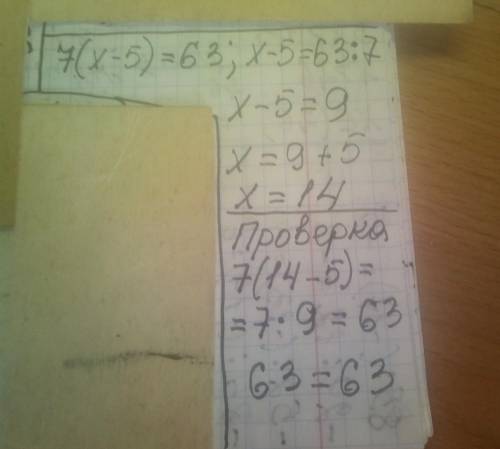 7(x-5)=63; x-5=63:7
x-5=9
x=9+5
x=14
Проверка
7(14-5)=
=7·9=63
63=63